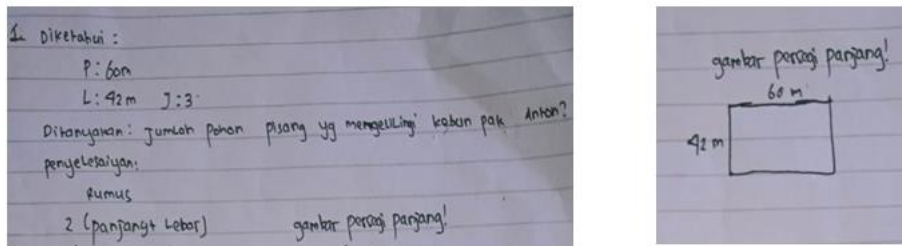 1. Diketahui :
P : 60m
L : 42 m J : 3
Ditanyakan : Jumlah Pohon pisang yg mengelilingi kebun pak Anton?
penyelesaiyan:
Rumus
2 (panjang+ Lebar) gambar persegi panjang!
gambar persegi panjang!
60 m
42 m